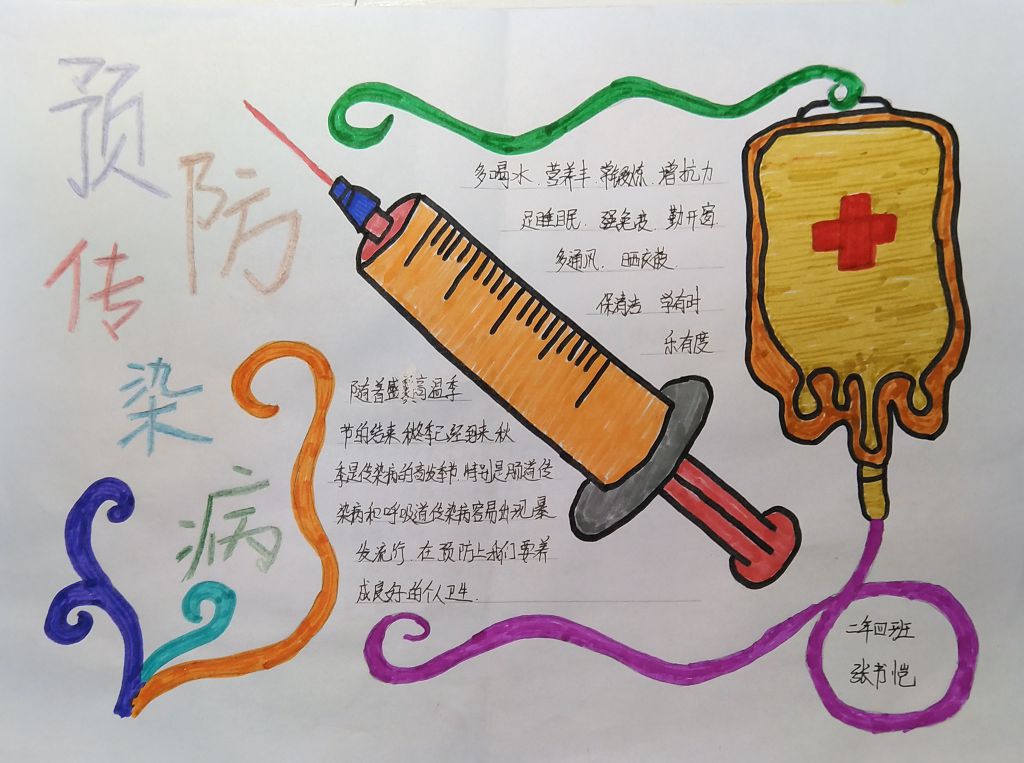 预防传染病
多喝水.营养丰.常锻炼.增抗力
足睡眠.强免疫 勤开窗.
多通风.晒衣被.
保清洁 学有时
乐有度
随着盛夏高温季
节的结束秋季已经到来,秋
季是传染病的高发季节.特别是肠道传
染病和呼吸道传染病容易出现暴
发流行.在预防上我们要养
成良好的个人卫生.
二年四班
张书恺